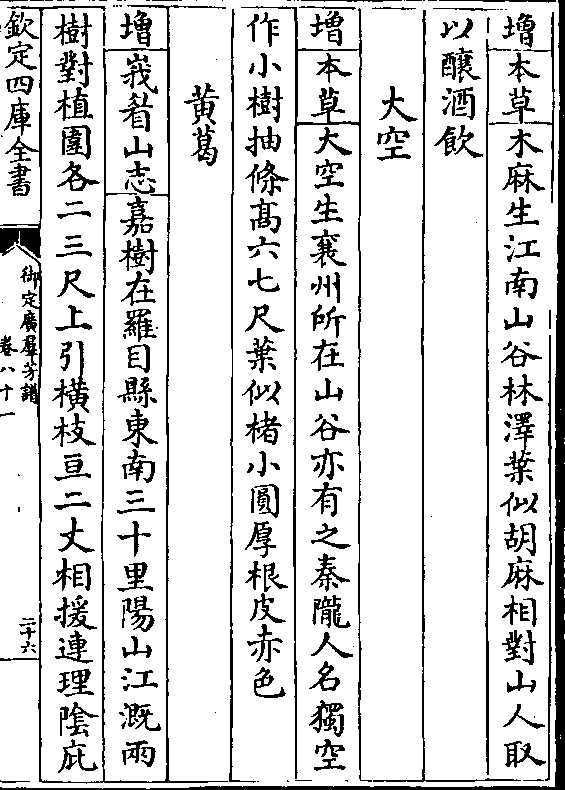 增本草木麻生江南山谷林澤葉似胡麻相對山人取
以釀酒飲
大空
增本草大空生襄州所在山谷亦有之秦隴人名獨空
作小樹抽條高六七尺葉似楮小圓厚根皮赤色
黃葛
增峩眉山志嘉樹在羅目縣東南三十里陽山江溉兩
樹對植圍各二三尺上引橫枝亘二丈相援連理陰庇
欽定四庫全書
御定廣羣芳譜
卷八十一
二十六